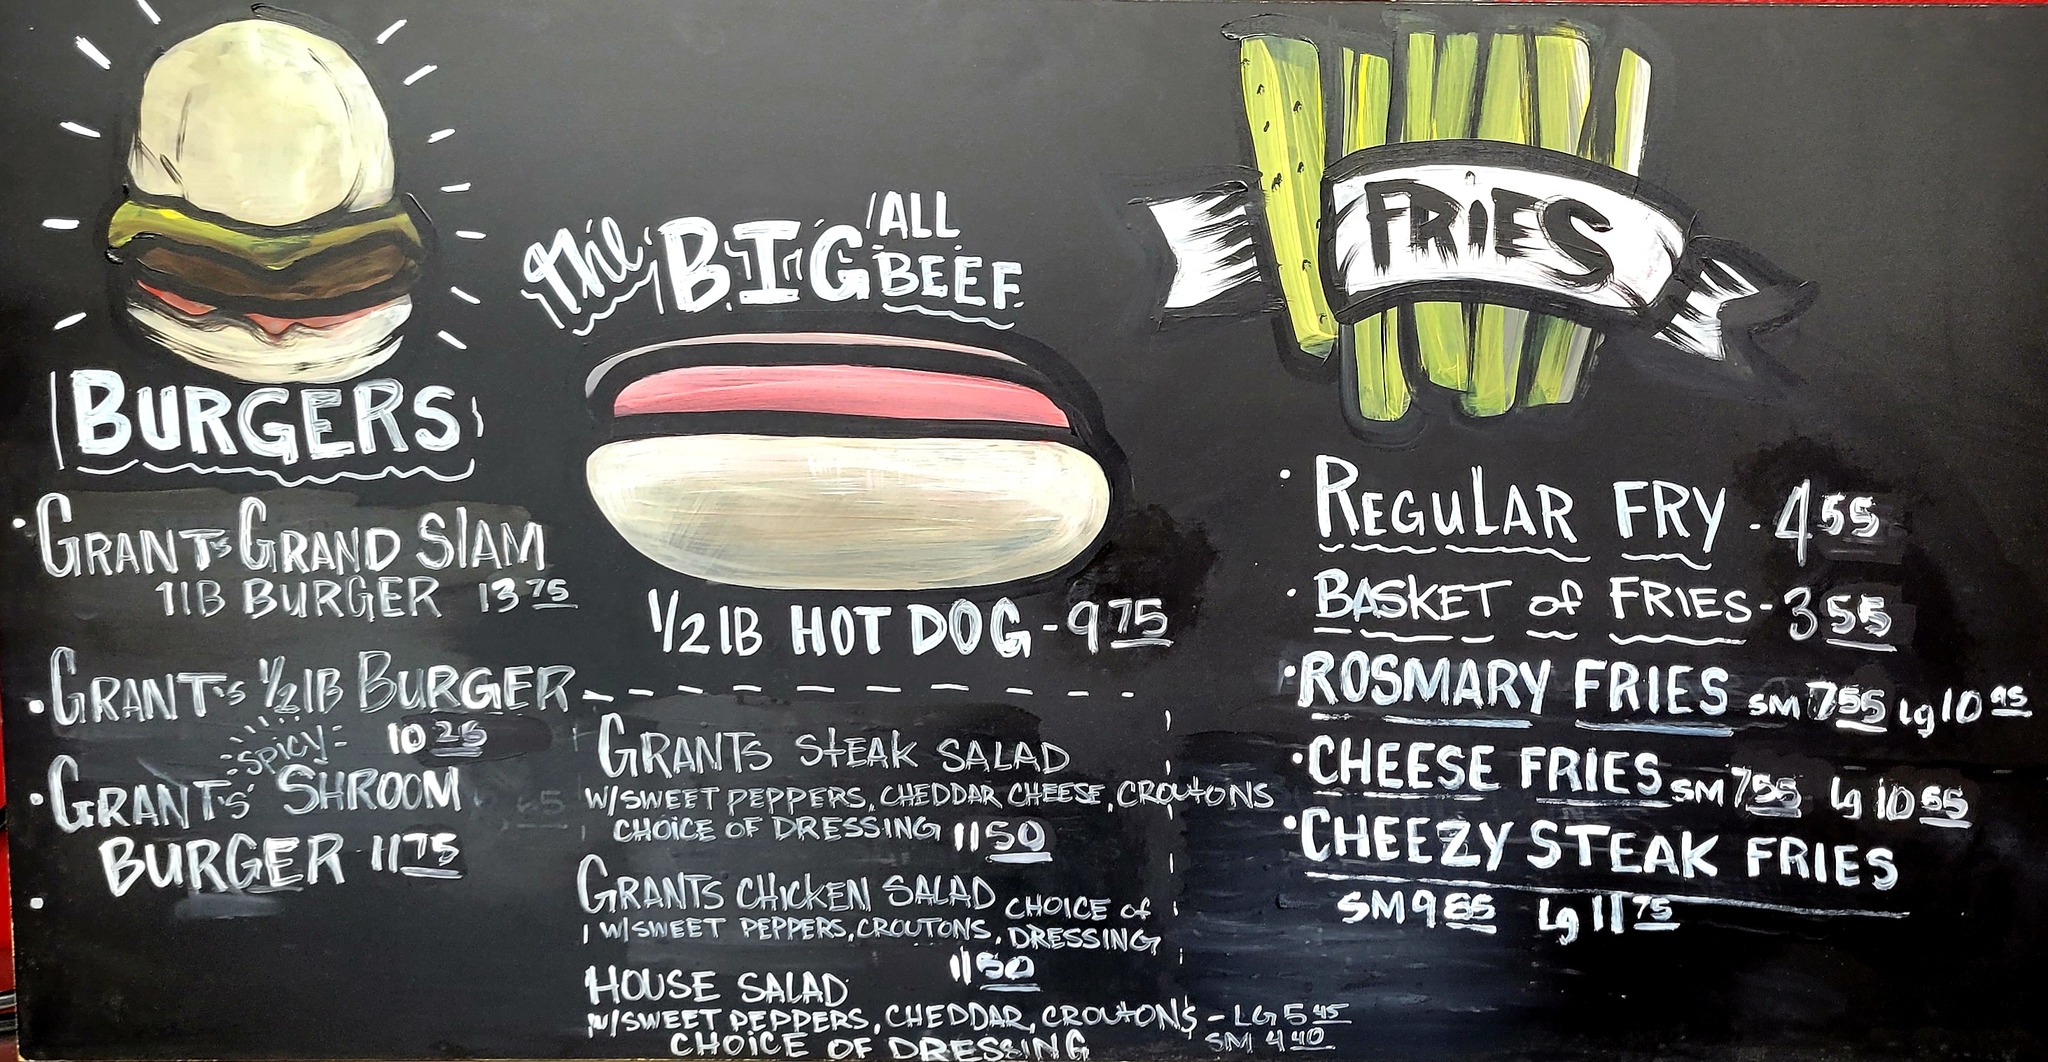 BURGERS
GRANT'S GRAND SLAM
1 LB BURGER 13 75
GRANT'S 1/2 LB BURGER
10 25
SPICY
GRANT'S SHROOM
BURGER 11 75
The BIG ALL BEEF
1/2 LB HOT DOG - 9 75
GRANTS STEAK SALAD
W/SWEET PEPPERS, CHEDDAR CHEESE, CROUTONS
CHOICE OF DRESSING 11 50
GRANTS CHICKEN SALAD CHOICE of
W/SWEET PEPPERS, CROUTONS, DRESSING
11 50
HOUSE SALAD
W/SWEET PEPPERS, CHEDDAR, CROUTONS - LG 5 45
CHOICE OF DRESSING SM 4 40
FRIES
REGULAR FRY - 4 55
BASKET of FRIES - 3 55
ROSMARY FRIES SM 7 55 Lg 10 45
CHEESE FRIES SM 7 55 Lg 10 55
CHEEZY STEAK FRIES
SM 9 Lg 11 75